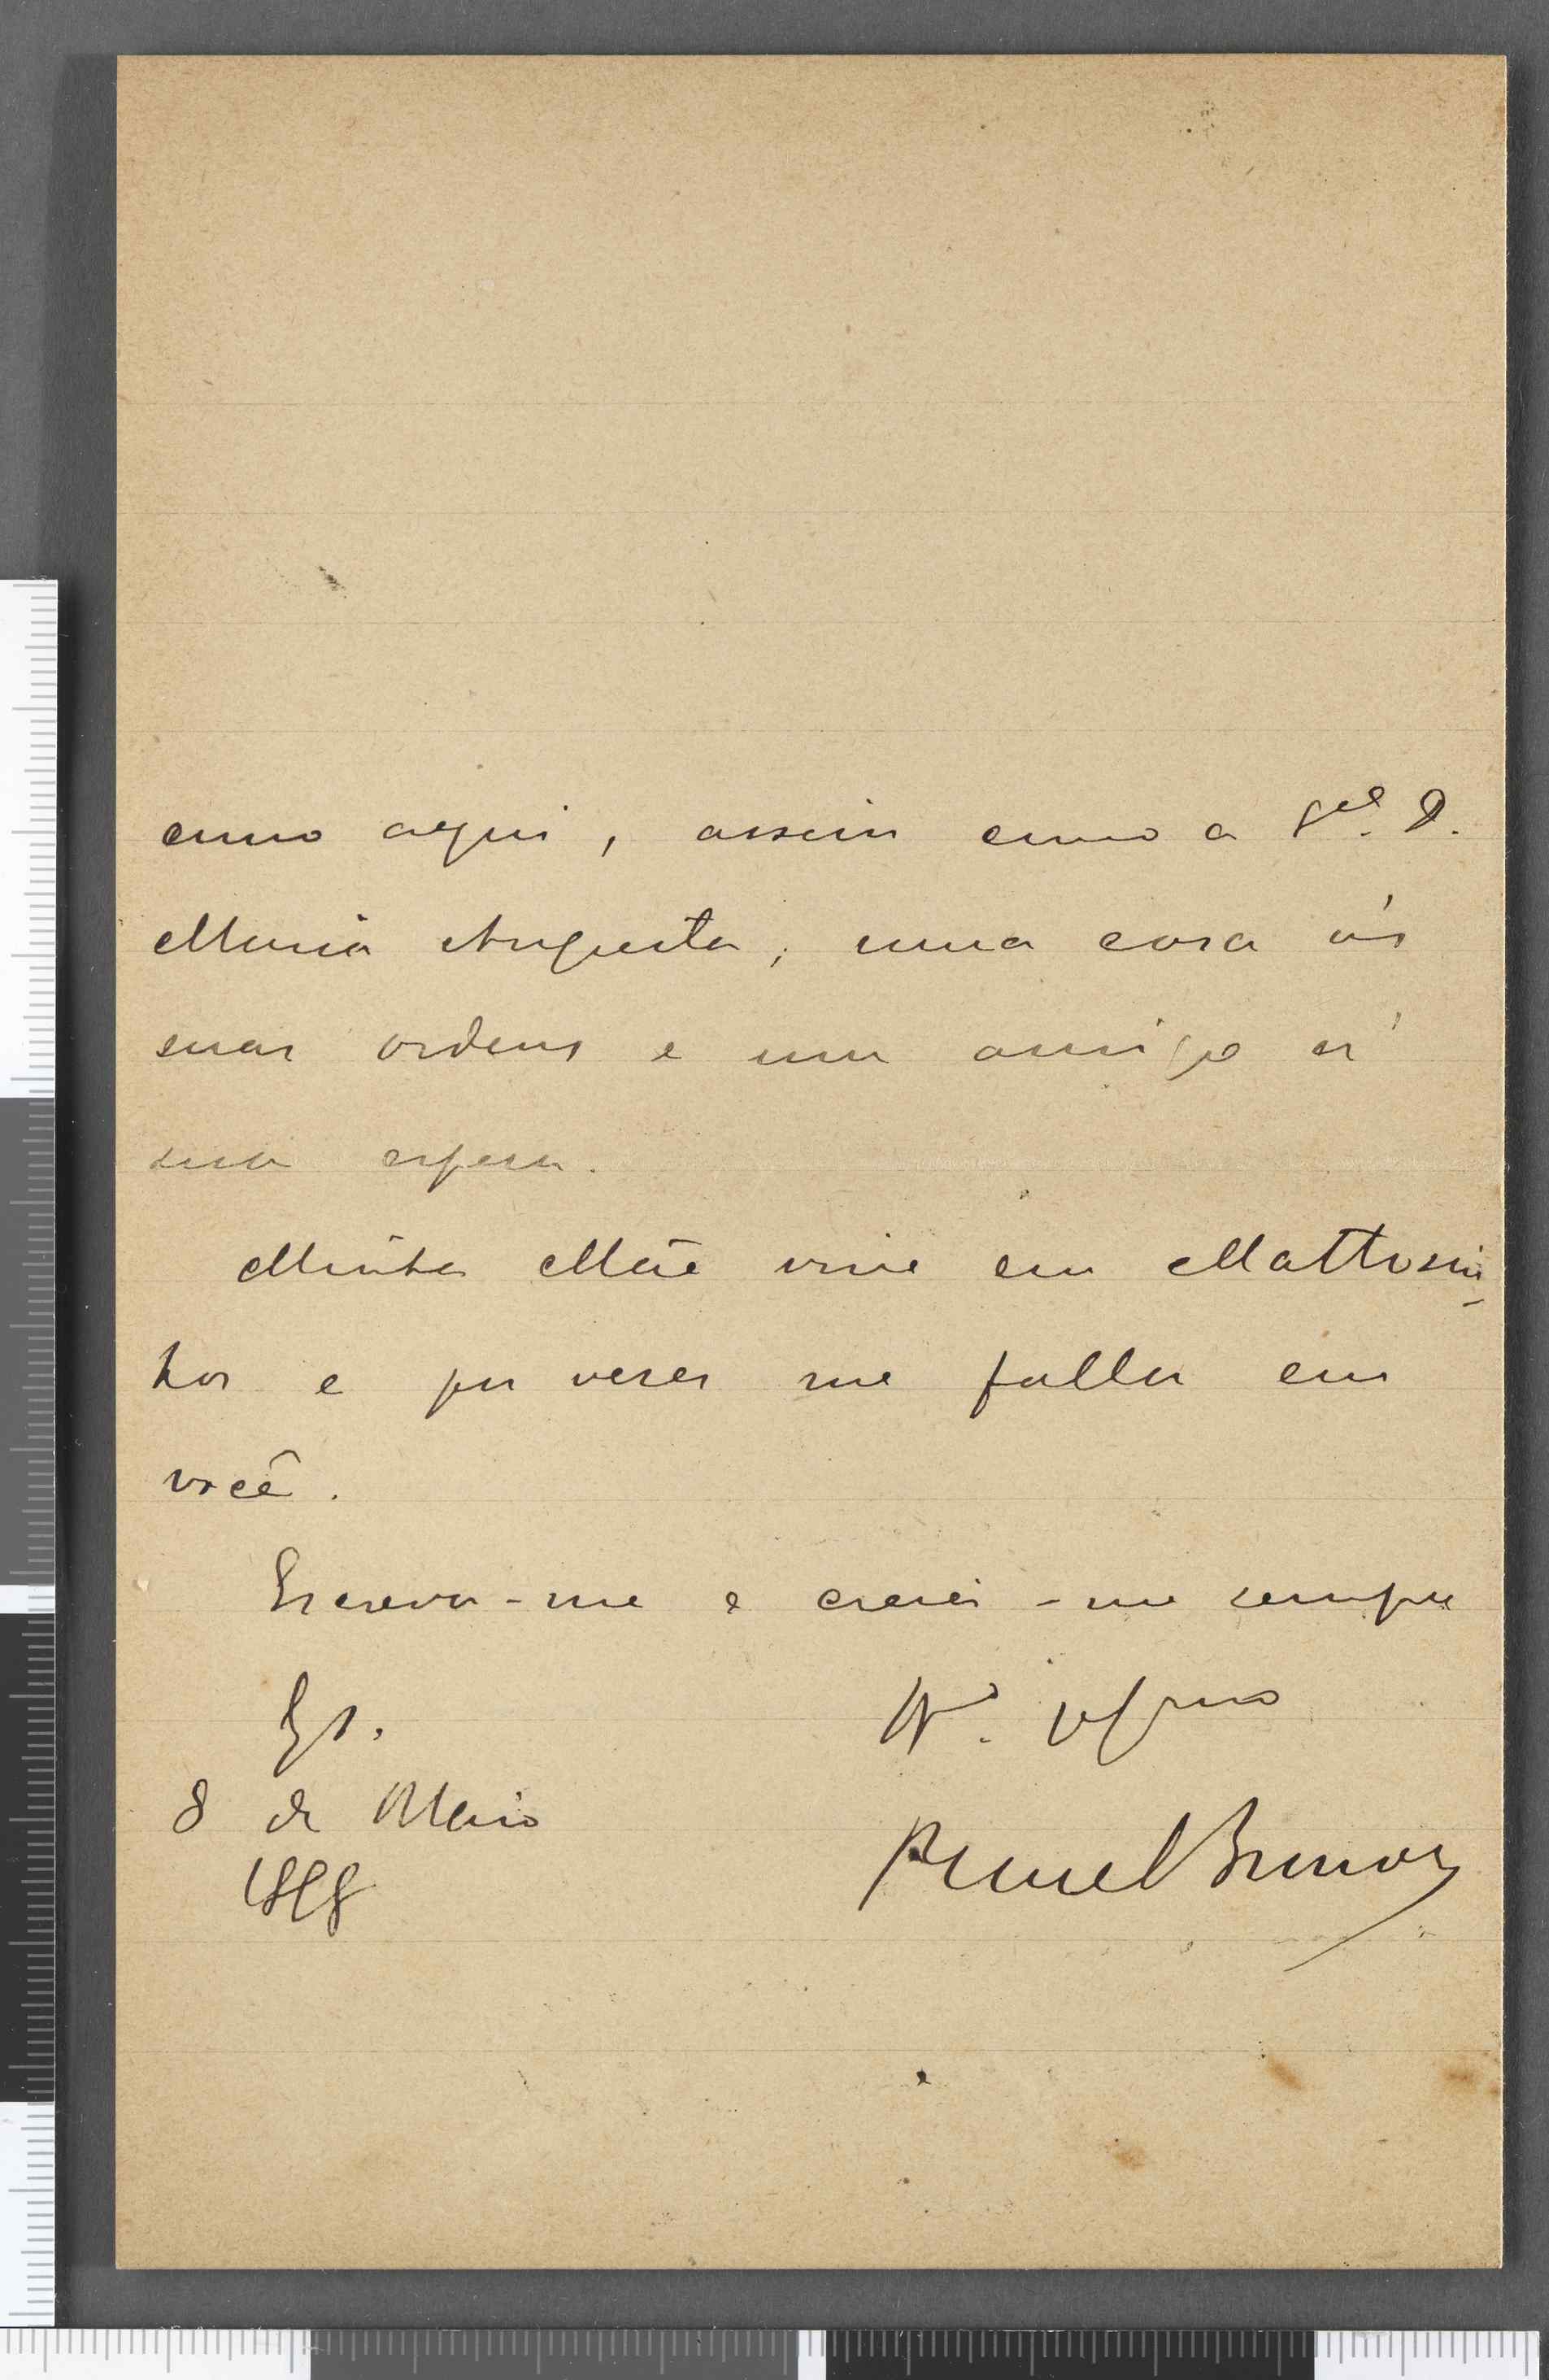 como aqui, assim como a Snrª. D.
Maria Augusta, uma casa ás
suas ordens e um amigo á
sua espera.
Minha Mãe vive em Mattosi-
hos e por vezes me falla em
você.
Escreva-me e creia-me sempre
8 de Maio